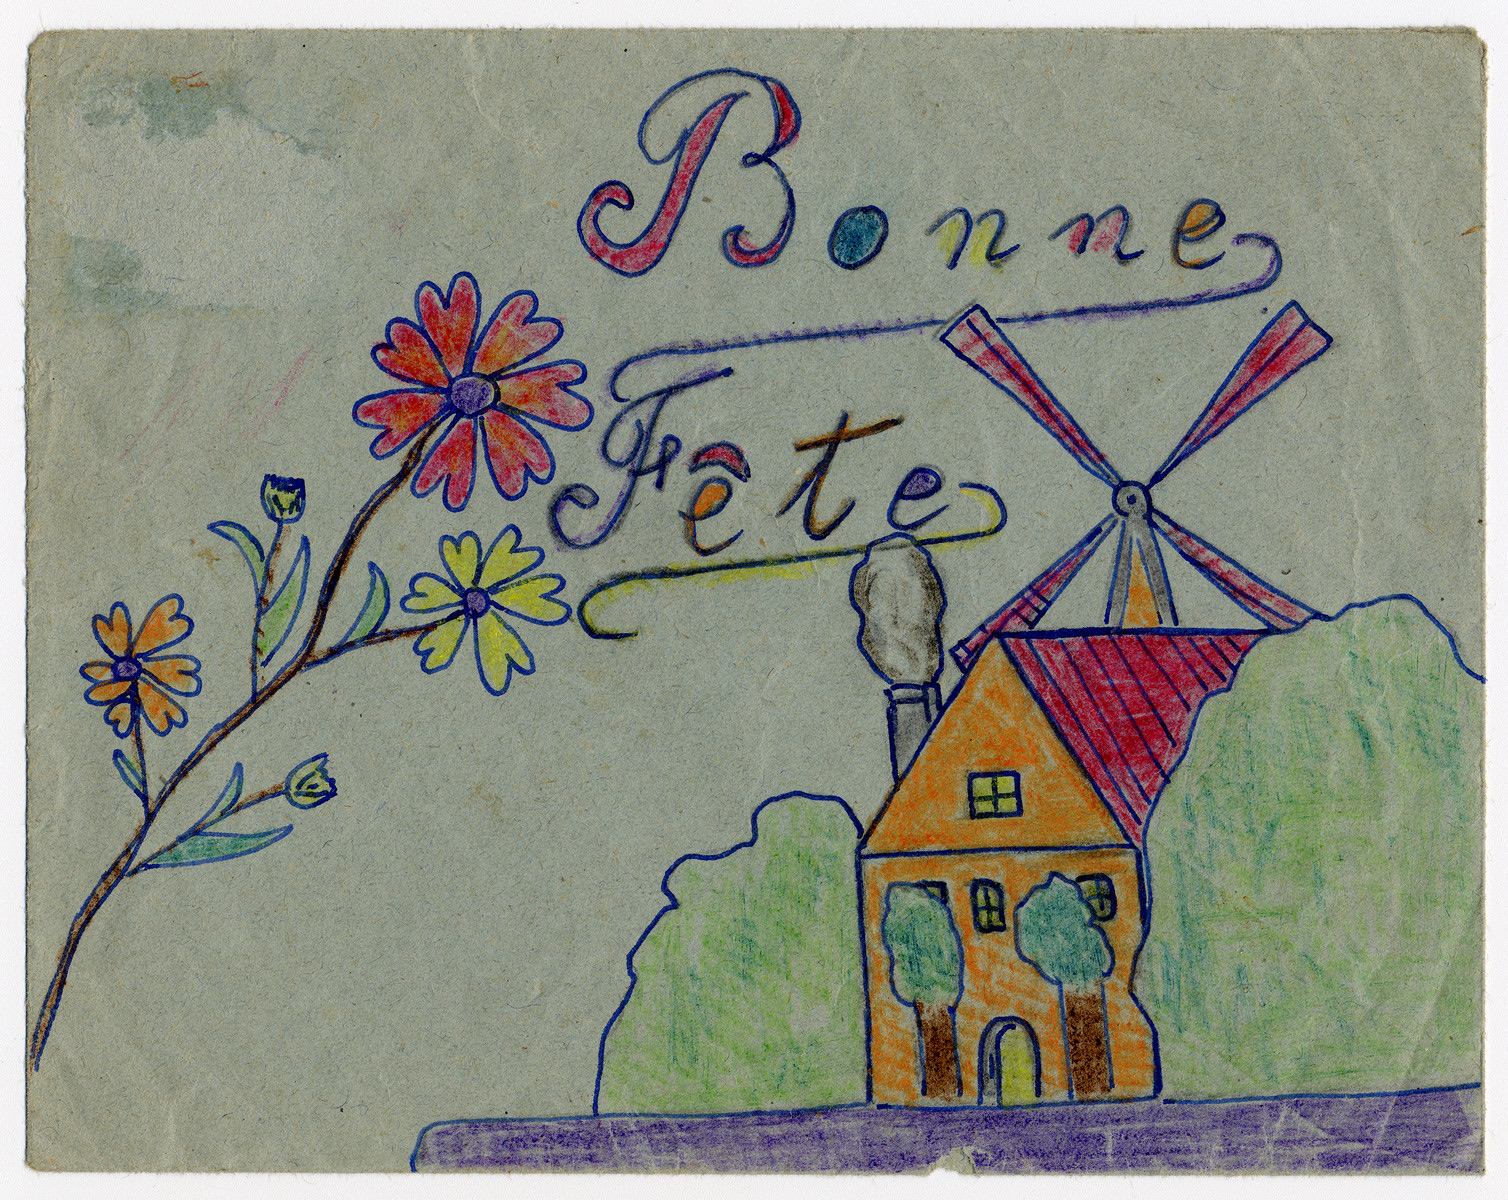 Bonne
Fête